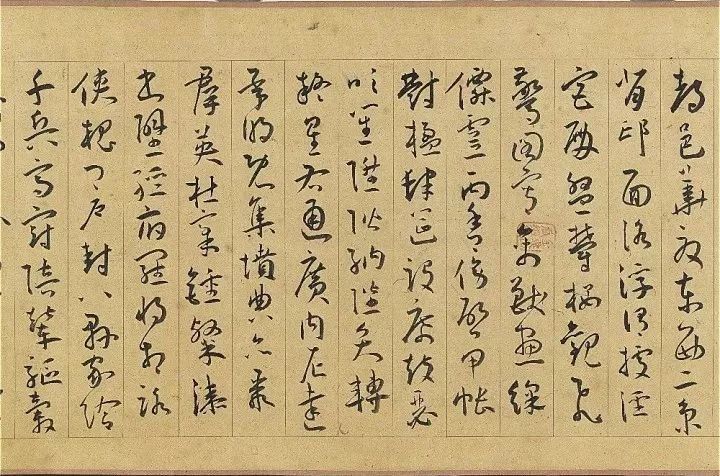 都邑華夏東西二京
背邙面洛浮渭據涇
宮殿盤鬱樓觀飛
驚圖寫禽獸畫綵
僊靈丙舍傍啓甲帳
對楹肆筵設席鼓瑟
吹笙陞階納陛弁轉
疑星右通廣內左達
承明既集墳典亦聚
群英杜稾鍾隸漆
書壁經府羅將相路
俠槐卿戶封八縣家給
千兵高冠陪輦驅轂